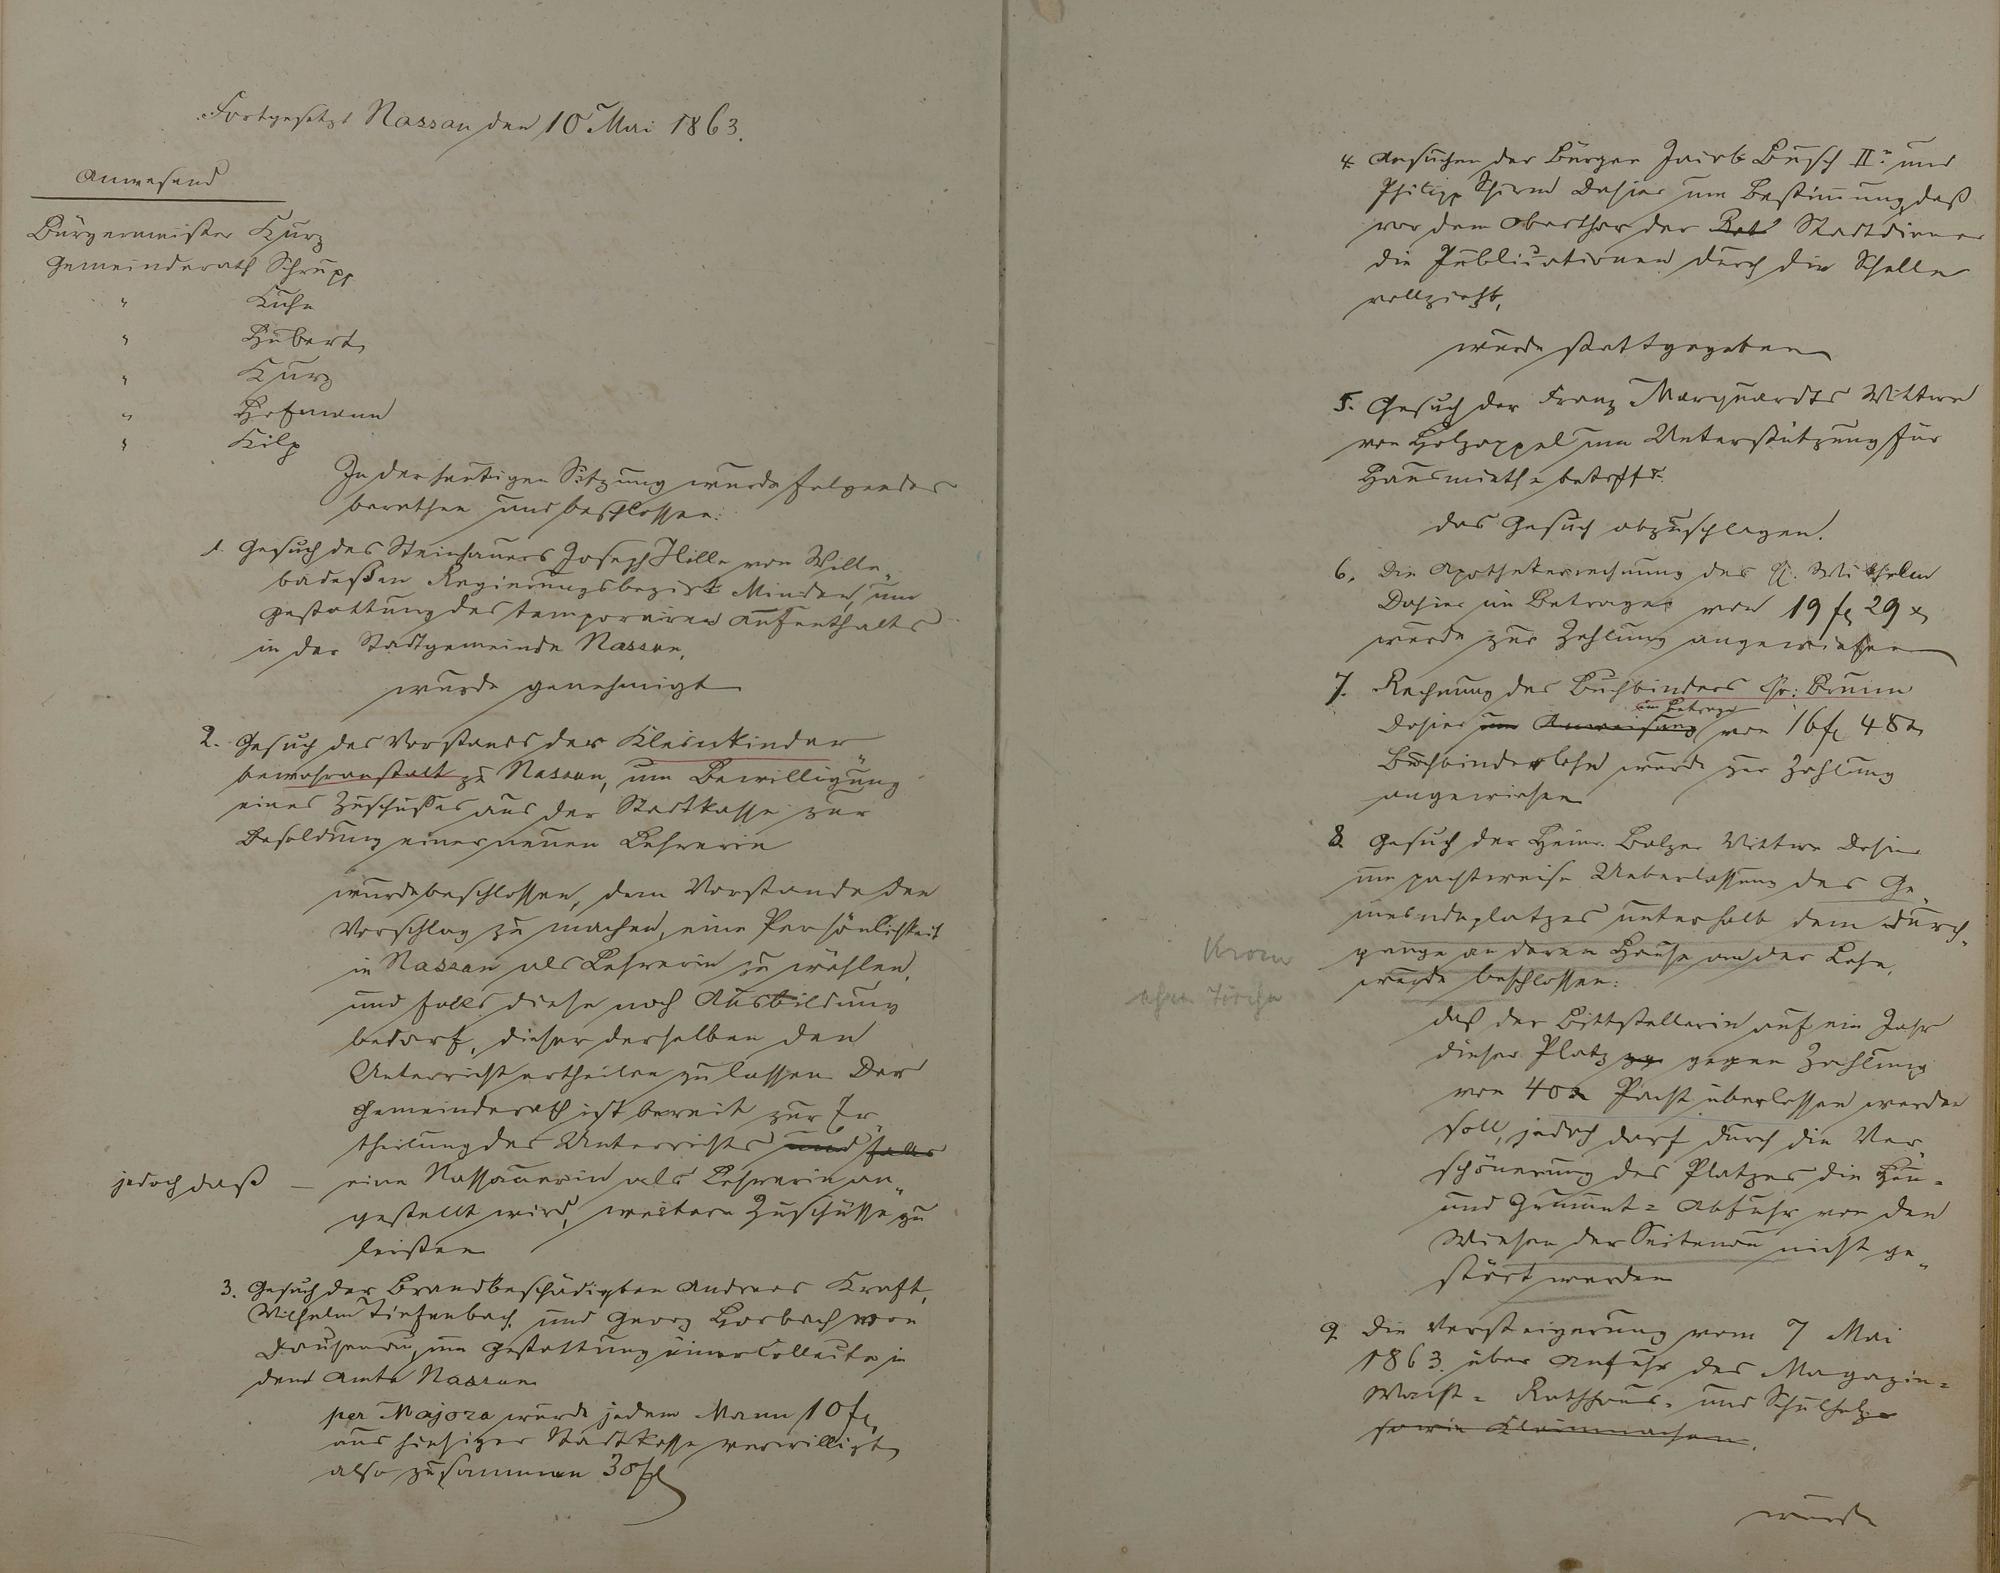 Fortgesetzt Nassau den 10ͭ Mai 1863.
Anwesend
Bürgermeister Kurz
Gemeinderath Schrupp
" Kuhn
" Hubert
" Kurz
" Hofmann
" Kilp
In der heutigen Sitzung wurde folgendes
berathen und beschlossen:
1. Gesuch des Steinhauers Joseph Hille von Wille„
badeßen Regierungsbezirk Minden, um
Gestattung des temporären Aufenthalts
in der Stadtgemeinde Nassau,
wurde genehmigt
2. Gesuch des Vorstands der Kleinkinder„
bewahranstalt zu Nassau, um Bewilligung
eines Zuschußes aus der Stadtkasse zur
Besoldung einer neuen Lehrerin
wurde beschlossen, dem Vorstande den
Vorschlag zu machen, eine Persönlichkeit
in Nassau als Lehrerin zu wählen,
und falls diese noch Ausbildung
bedarf, dieser derselben den
Unterricht ertheilen zu lassen. Der
Gemeinderath ist bereit zur Er„
theilung des Unterrichts und falls
jedoch daß – eine Nassauerin als Lehrerin an„
gestellt wird, weitere Zuschüsse zu
leisten
3. Gesuch der Brandbeschädigten Andreas Kraft,
Wilhelm Tiefenbach, und Georg Horbach von
Dausenau, um Gestattung einer Collecte in
dem Amte Nassau
per Majora wurde jedem Mann 10 fl,
aus hiesiger Stadtkasse verwilligt,
also zusammen 30 fl
4. Ansuchen der Bürger Jacob Busch IIͬ und
Philipp Schirm Dahier um Bestimmung, daß
vor dem Oberthor der Stadtdiener
die Publicationen durch die Schelle
vollzieht,
wurde stattgegeben
5. Gesuch der Franz Marquardts Wittwe
von Holzappel um Unterstützung für
Hausmiethe betrffd.
das Gesuch abzuschlagen.
6. Die Apothekerrechnung des H. Wilhelm
Dahier im Betrage von 19 fl 29 x
wurde zur Zahlung angewiesen
7. Rechnung des Buchbinders Chr: Brunn
im Betrage
dahier um Anweisung von 16 fl 48 x
Buchbinderlohn wurde zur Zahlung
angewiesen
8. Gesuch der Heinr. Balzer Wittwe Dahier
um pachtweise Ueberlassung des Ge„
meindeplatzes unterhalb dem Durch„
gange an deren Hause an der Lahn,
wurde beschlossen:
daß der Bittstellerin auf ein Jahr
dieser Platz gegen Zahlung
von 40 x Pacht überlassen werden
soll, jedoch darf durch die Ver„
schönerung des Platzes die Heu=
und Grummet= Abfuhr von den
Wiesen der nicht ge„
stört werden
9. Die Versteigerung vom 7 Mai
1863. über Anfuhr des Magazin=
Wacht= Rathhaus= und Schulholzes
sowie Kleinmachen.
wurde